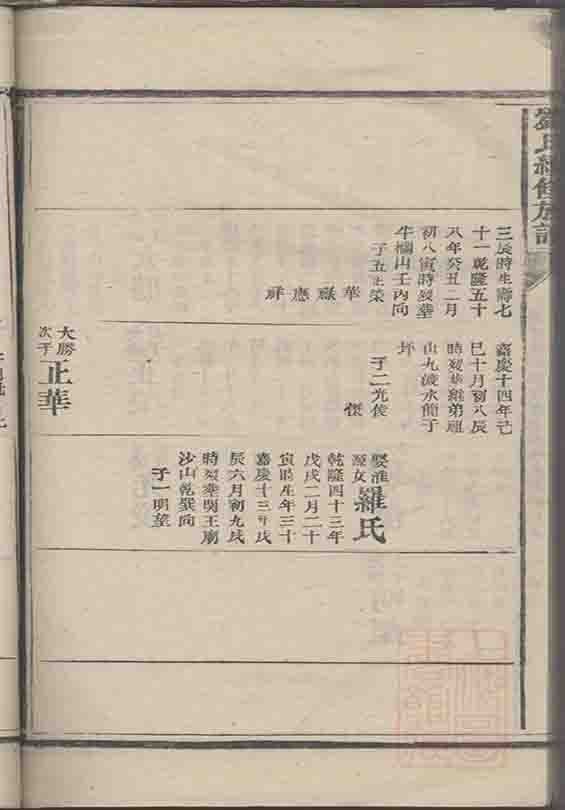 劉氏續修族譜
三辰時生壽七
十一乾隆五十
八年癸丑二月
初八寅時歿葬
牛欄山壬丙向
子五正榮
華
祿
應
祥
嘉慶十四年己
巳十月初八辰
時歿葬羅弟廻
山九渡水龍子
坪
子二光俊
傑
大勝
次子
正華
娶淮
源女
羅氏
乾隆四十三年
戊戌二月二十
寅時生年三十
嘉慶十三年戊
辰六月初九戌
時歿葬関王廟
沙山乾巽向
子一明望